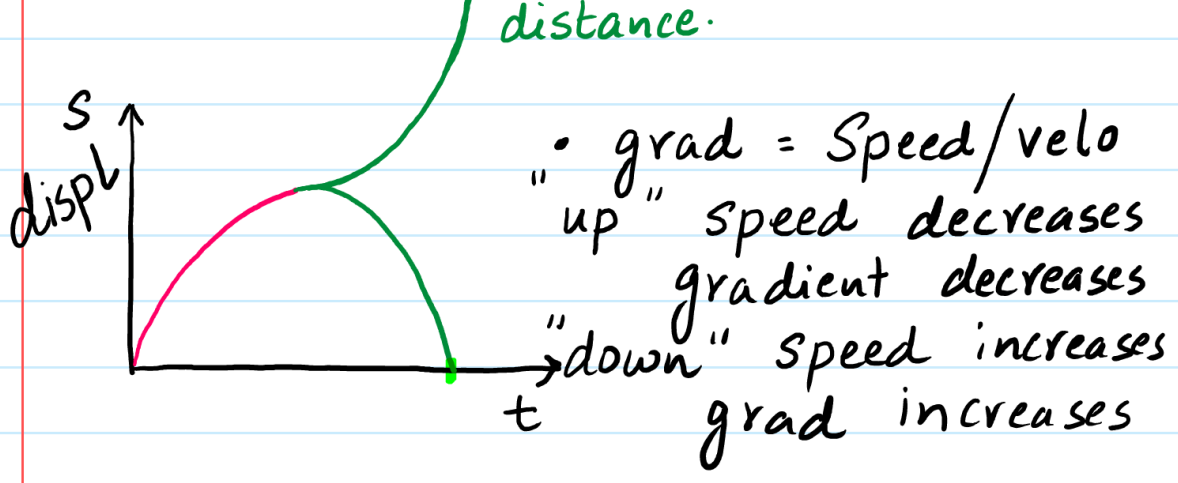 distance.
S
displ
• grad = Speed/velo
"up" speed decreases
gradient decreases
"down" speed increases
t
grad increases